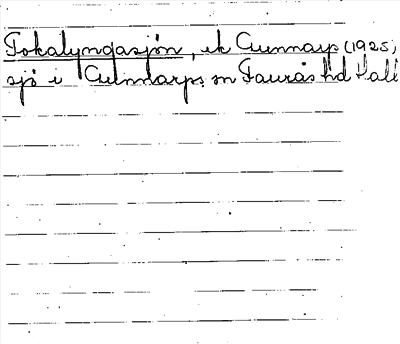 Tokalyngasjön, ek Gunnarp (1925,
sjö i Gunnarps sn Faurås hd Hall